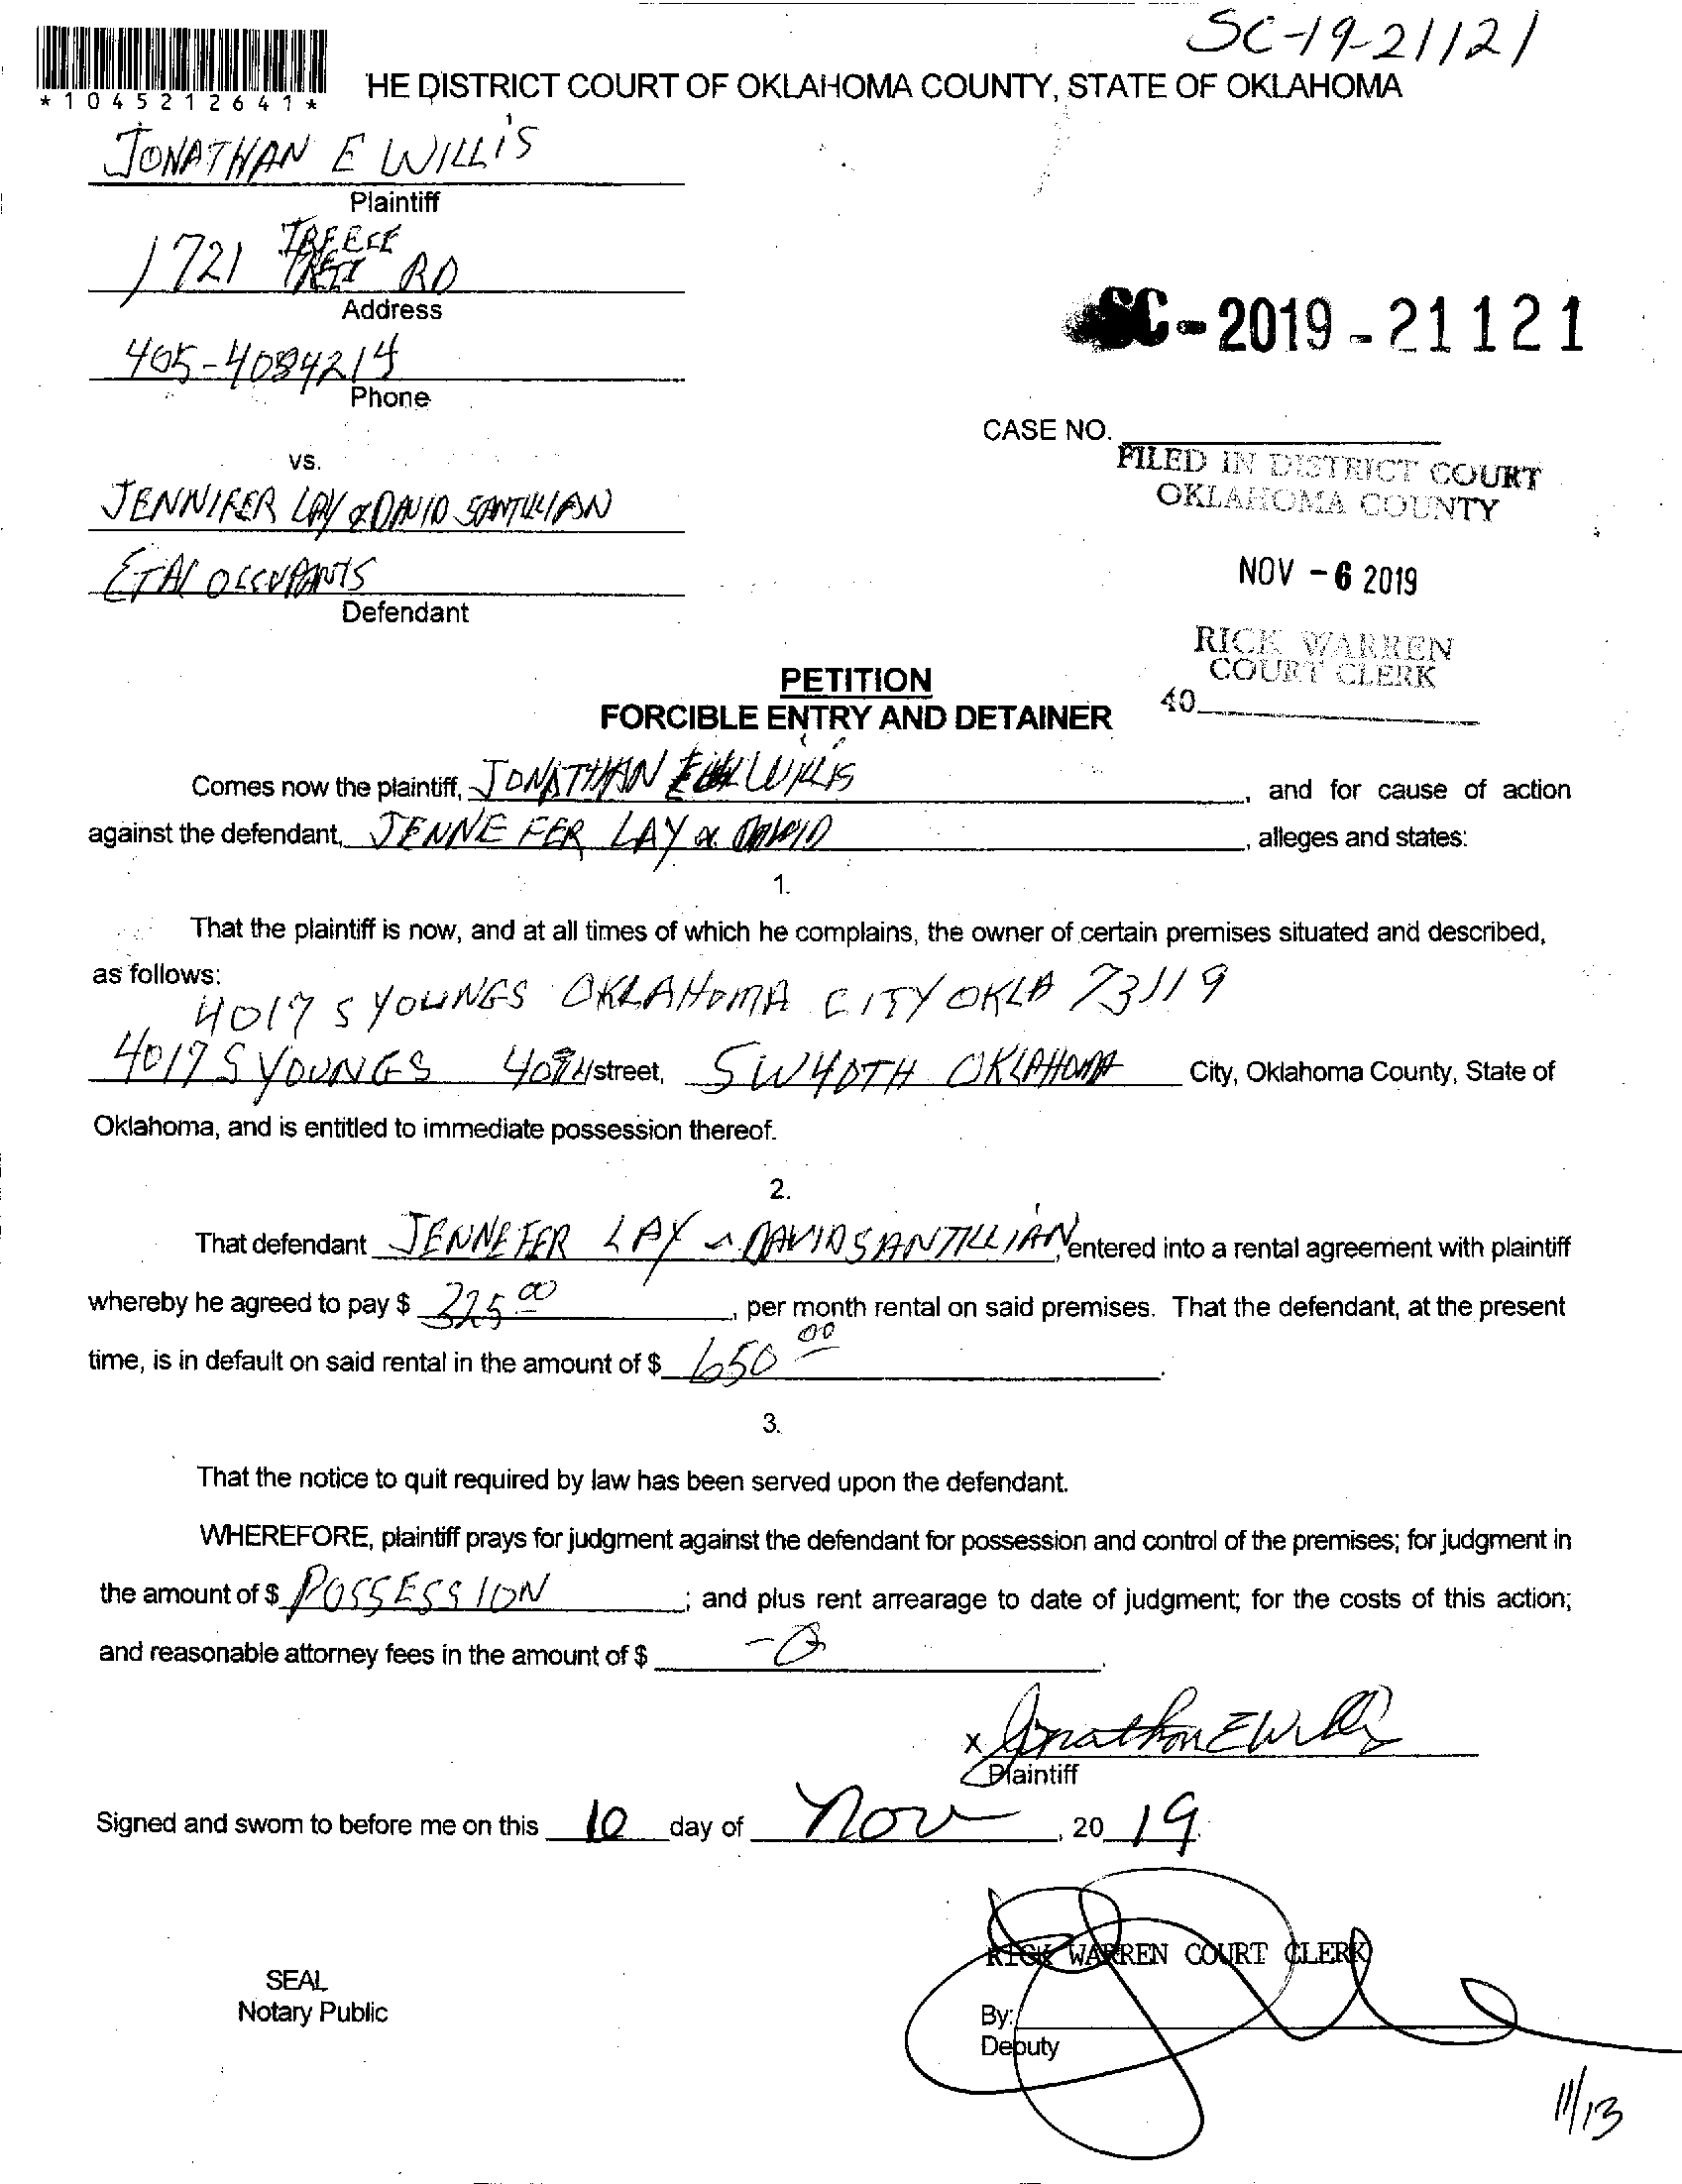 SC-19-21121
*1045212641*
HE DISTRICT COURT OF OKLAHOMA COUNTY, STATE OF OKLAHOMA
JONATHAN E WILLIS
Plaintiff
1721 TREECE RD
Address
405-4084214
Phone
SC-2019-21121
CASE NO.
vs.
FILED IN DISTRICT COURT
OKLAHOMA COUNTY
JENNIFER LAY & DAVID SANTILLIAN
ET AL OCCUPANTS
Defendant
NOV -6 2019
RICK WARREN
COURT CLERK
40
PETITION
FORCIBLE ENTRY AND DETAINER
Comes now the plaintiff, JONATHAN WILLIS, and for cause of action
against the defendant, JENNEFER LAY & DAVID, alleges and states:
1.
That the plaintiff is now, and at all times of which he complains, the owner of certain premises situated and described,
as follows:
4017 S YOUNGS OKLAHOMA CITY OKLA 73119
4017 S YOUNGS 40TH street, SW 40TH OKLAHOMA City, Oklahoma County, State of
Oklahoma, and is entitled to immediate possession thereof.
2.
That defendant JENNEFER LAY DAVID SANTILLIAN, entered into a rental agreement with plaintiff
whereby he agreed to pay $ 325 00, per month rental on said premises. That the defendant, at the present
time, is in default on said rental in the amount of $ 650 00.
3.
That the notice to quit required by law has been served upon the defendant.
WHEREFORE, plaintiff prays for judgment against the defendant for possession and control of the premises; for judgment in
the amount of $ POSSESSION; and plus rent arrearage to date of judgment; for the costs of this action;
and reasonable attorney fees in the amount of $ -0.
x Jonathon E Willis
Plaintiff
Signed and sworn to before me on this 10 day of Nov, 20 19.
RICK WARREN COURT CLERK
SEAL
Notary Public
By:
Deputy
11/13